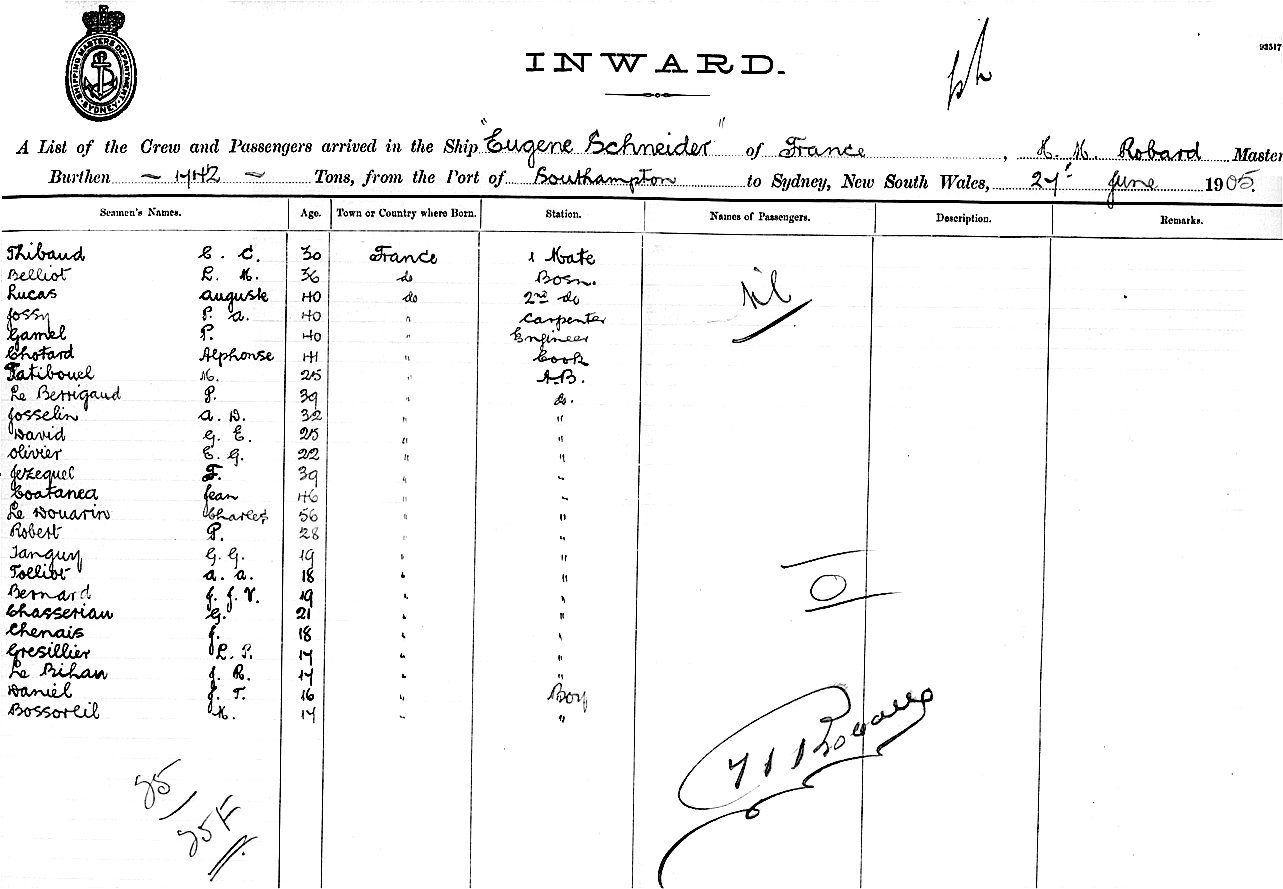 SHIPPING MASTER'S DEPARTMENT SYDNEY
93517
INWARD.
A List of the Crew and Passengers arrived in the Ship "Eugene Schneider" of France, H. M. Robard Master
Burthen – 1742 – Tons, from the Port of Southampton to Sydney, New South Wales, 27th June 1905.
Seamen's Names. Age. Town or Country where Born. Station. Names of Passengers. Description. Remarks.
Thibaud E. C. 30 France 1 Mate
Belliot L. M. 36 do Bosn. Nil
Lucas Auguste 40 do 2nd do
Jossy P. A. 40 " Carpenter
Gamel P. 40 " Engineer
Chotard Alphonse 41 " Cook
Fatibouel M. 25 " A.B.
Le Berrigaud P. 39 " do.
Josselin A. D. 32 " "
David G. E. 25 " "
Olivier E. G. 22 " "
Jezequel F. 39 " "
Coatanea Jean 46 " "
Le Douarin Charles 56 " "
Robert P. 28 " "
Tanguy G. G. 19 " "
Tolliot A. A. 18 " "
Bernard J. J. V. 19 " "
Chasserian G. 21 " "
Chenais J. 18 " "
Gresillier L. P. 17 " "
Le Bihan J. R. 17 " "
Daniel J. T. 16 " Boy
Bossoreil H. 17 " "
25
25F